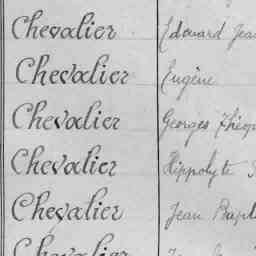 Chevalier Edouard Jean
Chevalier Eugène
Chevalier Georges Théop
Chevalier Hippolyte
Chevalier Jean Bapt
Chevalier